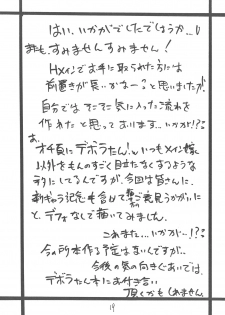 はい、いかがでしたでしょうか…、
あも、すみませんすみません!
Hメインでお手に取られた方には
前置きが長いかなーっと思いましたが、
自分ではそこそこ気に入った流れを
作れたと思っております…いかがか!?
オチ頃にデボラたん!、いつもメイン嫁
以外をもんのすごく目立たなくすつような
ラクにしてるんですが、今回は皆さんに
新ギャラ記念も含めてご意見うかがいに、
と、デフォなしで描いてみました。
これまた…いかがか…!?
今の所本作る予定はまいんですが…
今後の気の向きぐあいでは、
デボラたん本にお付き合い
頂くかもしれません
19